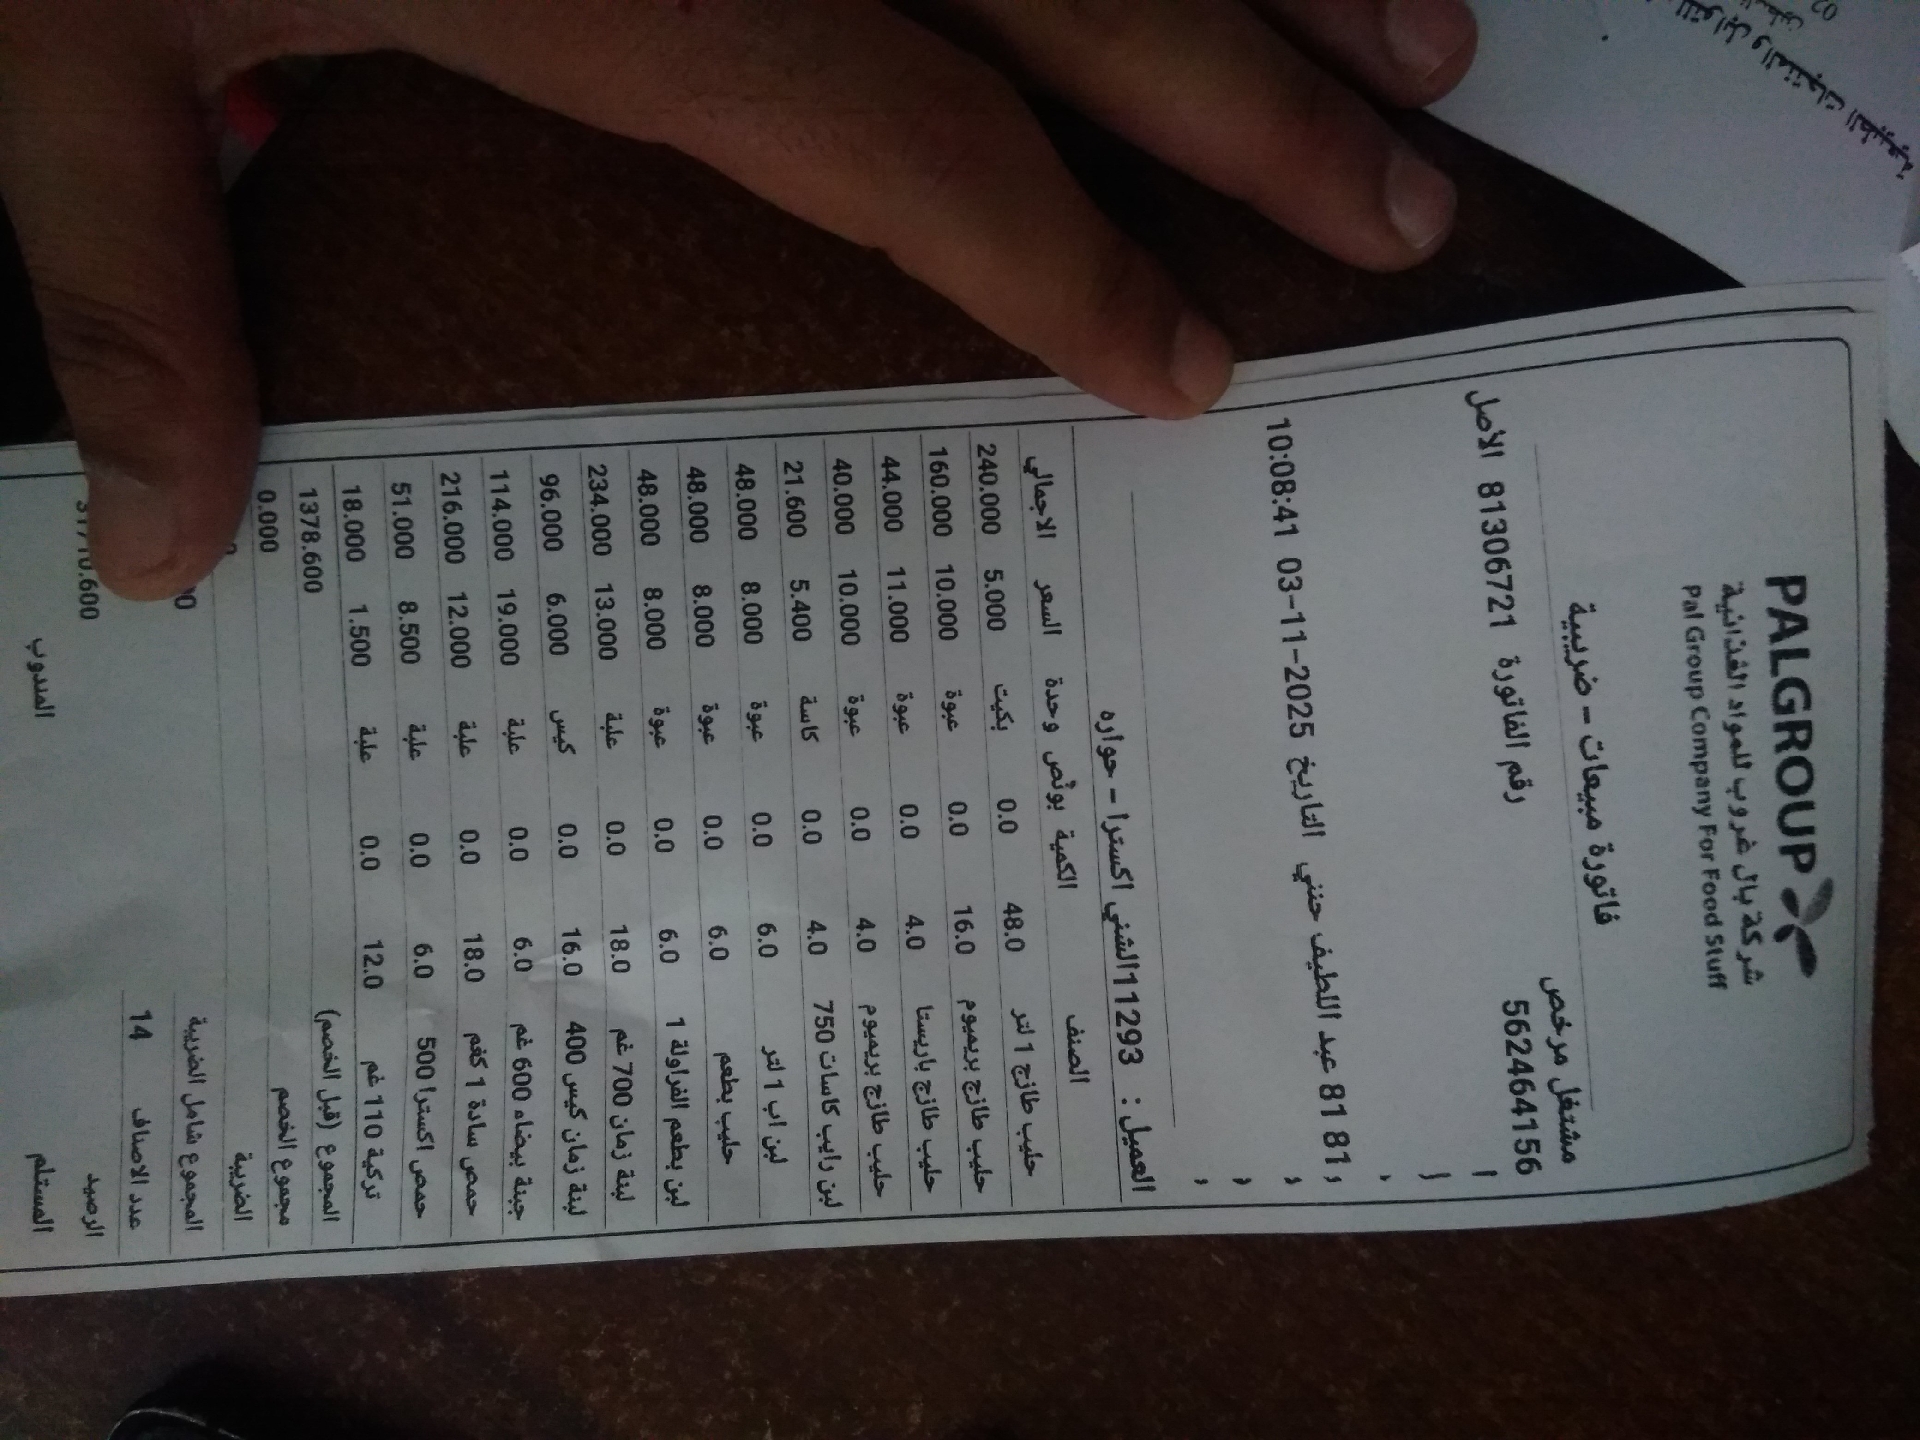 PALGROUP
شركة بال غروب للمواد الغذائية
Pal Group Company For Food Stuff
فاتورة مبيعات - ضريبية
مشتغل مرخص 562464156
رقم الفاتورة 81306721 الأصل
81 81 عبد اللطيف حنني التاريخ 2025-11-03 10:08:41
العميل : 11293الشني اكسترا - حواره
الصنف الكمية بونص وحدة السعر الاجمالي
حليب طازج 1 لتر 48.0 0.0 بكيت 5.000 240.000
حليب طازج بريميوم 16.0 0.0 عبوة 10.000 160.000
حليب طازج باريستا 4.0 0.0 عبوة 11.000 44.000
حليب طازج بريميوم 4.0 0.0 عبوة 10.000 40.000
لبن رايب كاسات 750 4.0 0.0 كاسة 5.400 21.600
لبن اب 1 لتر 6.0 0.0 عبوة 8.000 48.000
حليب بطعم 6.0 0.0 عبوة 8.000 48.000
لبن بطعم الفراولة 1 6.0 0.0 عبوة 8.000 48.000
لبنة زمان 700 غم 18.0 0.0 علبة 13.000 234.000
لبنة زمان كيس 400 16.0 0.0 كيس 6.000 96.000
جبنة بيضاء 600 غم 6.0 0.0 علبة 19.000 114.000
حمص سادة 1 كغم 18.0 0.0 علبة 12.000 216.000
حمص اكسترا 500 6.0 0.0 علبة 8.500 51.000
تركية 110 غم 12.0 0.0 علبة 1.500 18.000
المجموع (قبل الخصم) 1378.600
مجموع الخصم 0.000
الضريبة
المجموع شامل الضريبة
عدد الاصناف 14
الرصيد
المستلم المندوب